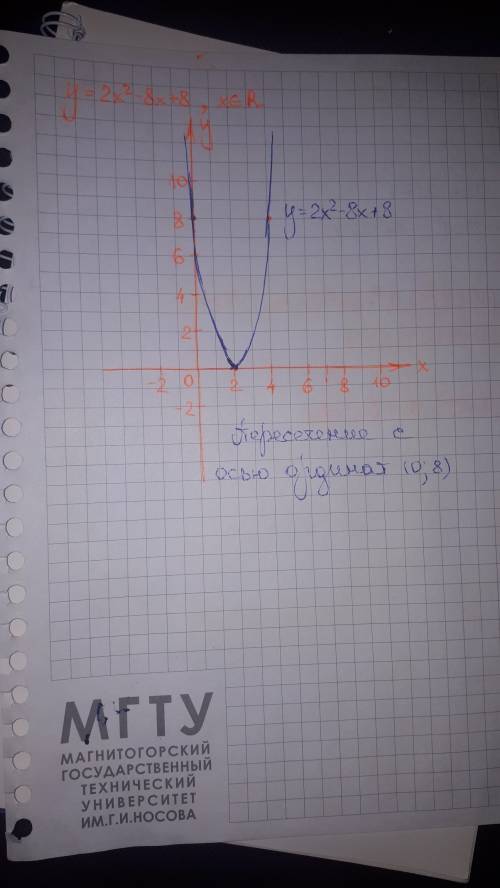 y = 2x² - 8x + 8, x ∈ R
y
10
y = 2x² - 8x + 8
8
6
4
2
-2 0 2 4 6 8 10 x
-2
Пересечение с
осью ординат (0; 8)
МГТУ
МАГНИТОГОРСКИЙ
ГОСУДАРСТВЕННЫЙ
ТЕХНИЧЕСКИЙ
УНИВЕРСИТЕТ
ИМ.Г.И.НОСОВА